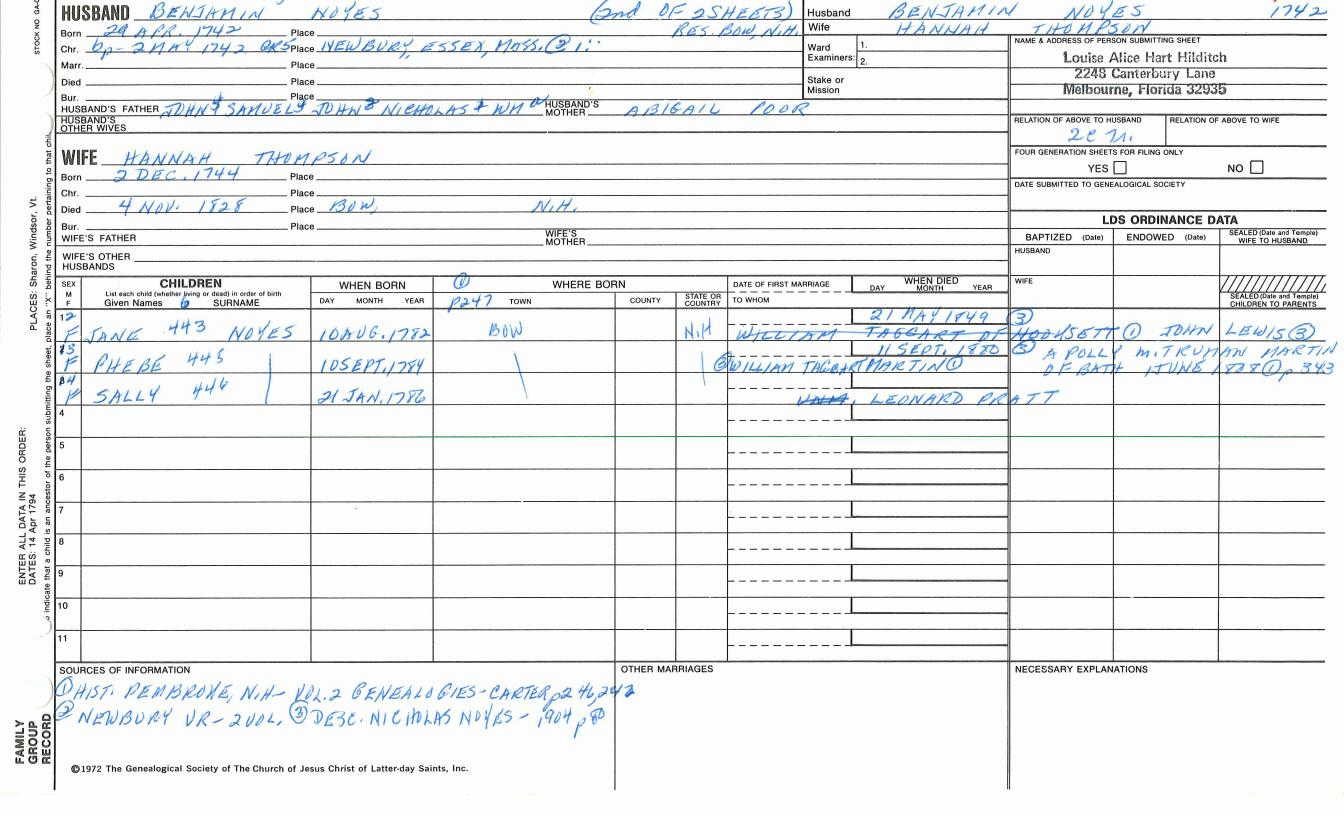 STOCK NO. GA-
HUSBAND BENJAMIN NOYES (2nd OF 2 SHEETS)
Born 29 APR. 1742 Place RES. BOW, N.H.
Chr. bp - 2 MAY 1742 Place NEWBURY, ESSEX, MASS. ②
Marr. Place
Died Place
Bur. Place
HUSBAND'S FATHER JOHN SAMUEL JOHN NICHOLAS WM HUSBAND'S MOTHER ABIGAIL POOR
HUSBAND'S OTHER WIVES
WIFE HANNAH THOMPSON
Born 2 DEC. 1744 Place
Chr. Place
Died 4 NOV. 1828 Place BOW, N.H.
Bur. Place
WIFE'S FATHER WIFE'S MOTHER
WIFE'S OTHER HUSBANDS
Husband BENJAMIN NOYES 1742
Wife HANNAH THOMPSON
Ward Examiners: 1.
2.
Stake or Mission
NAME & ADDRESS OF PERSON SUBMITTING SHEET
Louise Alice Hart Hilditch
2248 Canterbury Lane
Melbourne, Florida 32935
RELATION OF ABOVE TO HUSBAND RELATION OF ABOVE TO WIFE
FOUR GENERATION SHEETS FOR FILING ONLY
YES NO
DATE SUBMITTED TO GENEALOGICAL SOCIETY
LDS ORDINANCE DATA
BAPTIZED (Date) ENDOWED (Date) SEALED (Date and Temple) WIFE TO HUSBAND
HUSBAND
WIFE
SEALED (Date and Temple) CHILDREN TO PARENTS
SEX M F CHILDREN WHEN BORN ① WHERE BORN DATE OF FIRST MARRIAGE WHEN DIED
List each child (whether living or dead) in order of birth DAY MONTH YEAR
Given Names 6 SURNAME DAY MONTH YEAR p247 TOWN COUNTY STATE OR COUNTRY TO WHOM
12 21 MAY 1849 ③
F JANE 443 NOYES 10 AUG. 1782 BOW N.H WILLIAM TAGGART OF HOOKSETT ① JOHN LEWIS ③
13 11 SEPT. 1880 ③ A POLLY M. TRUMAN MARTIN
F PHEBE 445 10 SEPT. 1784 ③ WILLIAM TAGGART MARTIN ① OF BATH 1 JUNE 1828 ① p 343
14
F SALLY 446 21 JAN. 1786 UNM. LEONARD PRATT
4
5
6
7
8
9
10
11
SOURCES OF INFORMATION OTHER MARRIAGES NECESSARY EXPLANATIONS
① HIST. PEMBROKE, N.H - VOL. 2 GENEALOGIES - CARTER p246, 247
② NEWBURY VR - 2 VOL. ③ DESC. NICHOLAS NOYES - 1904 p 80
©1972 The Genealogical Society of The Church of Jesus Christ of Latter-day Saints, Inc.
PLACES: Sharon, Windsor, Vt.
ENTER ALL DATA IN THIS ORDER:
DATES: 14 Apr 1794
indicate that a child is an ancestor of the person submitting the sheet, place an "X" behind the number pertaining to that chil
FAMILY GROUP RECORD